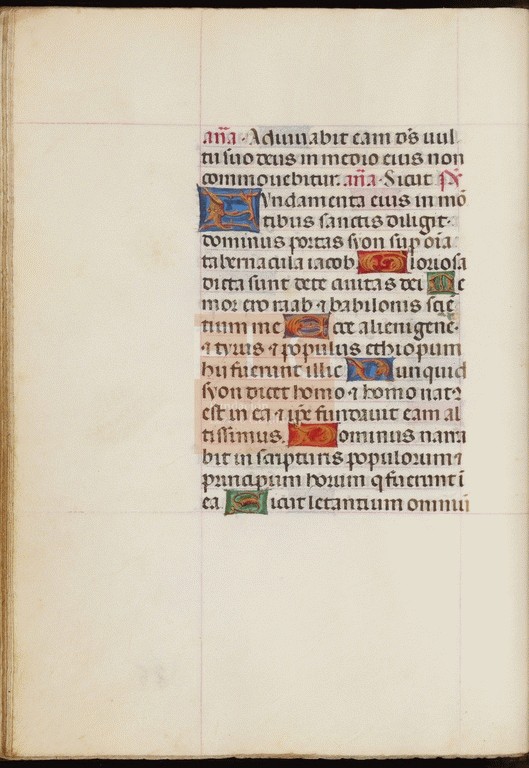 an̄a · Adiuuabit eam ds̄ uul
tu suo deus in medio eius non
commouebitur. an̄a · Sicut ps̄
Fundamenta eius in mō
tibus sanctis diligit ·
dominus portas syon sup oīa
tabernacula iacob Gloriosa
dicta sunt de te ciuitas dei Me
mor ero raab ⁊ babilonis sciē
tium me Ecce alienigene ·
⁊ tyrus ⁊ populus ethiopum
hij fuerunt illic Nunquid
syon dicet homo ⁊ homo natꝰ
est in ea ⁊ ip̄e fundauit eam al
tissimus. Dominus narra
bit in scripturis populorum ⁊
principum horum q̄ fuerunt ī
ea Sicut letantium omniū